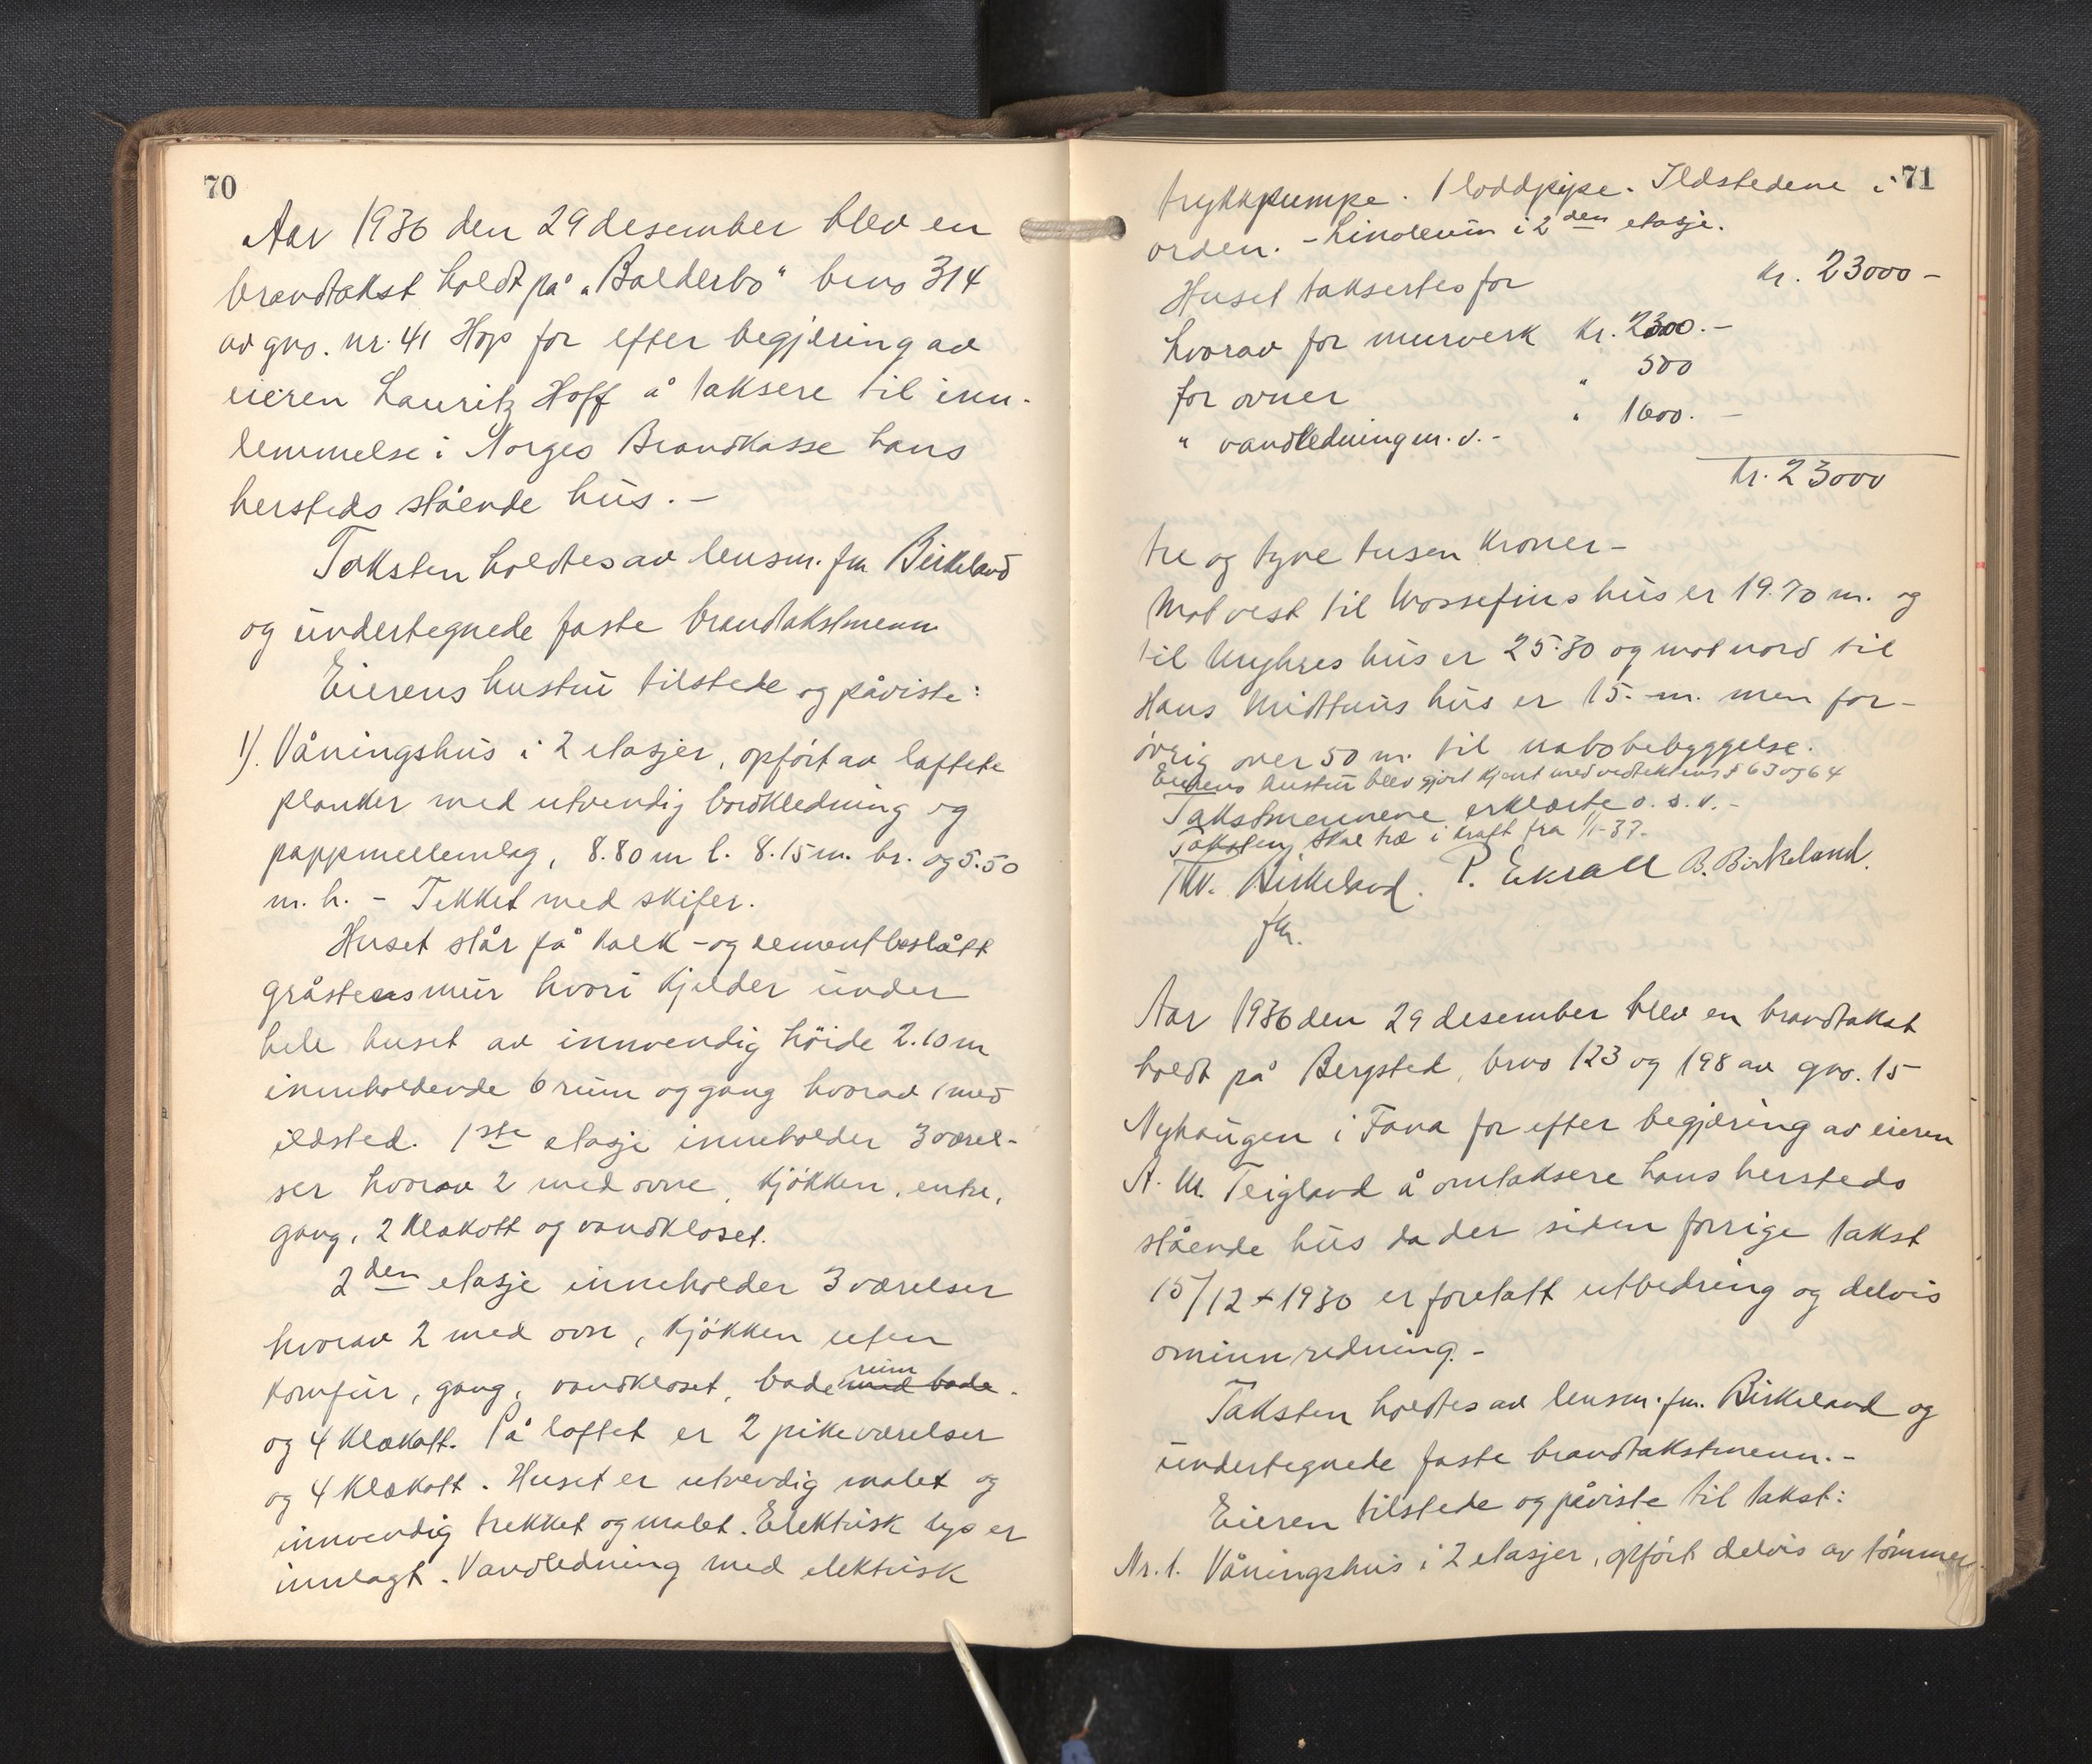 70
Aar 1936 den 29 desember blev en
brandtakst holdt på "Balderbo" brno 314
av gno. nr. 41 Hop for efter begjæring av
eieren Lauritz Hoff å taksere til inn-
lemmelse i Norges Brandkasse hans
hersteds stående hus. -
Taksten holdtes av lensm. fm Birkeland
og undertegnede faste brandtakstmenn
Eierens hustru tilstede og påviste:
1). Våningshus i 2 etasjer, opført av laftete
planker med utvendig bordkledning og
pappmellemlag, 8.80 m l. 8.15 m. br. og 5.50
m. h. - Tekket med skifer.
Huset står på kalk- og cementbeslått
gråstensmur hvori kjelder under
hele huset av innvendig höide 2.10 m
inneholdende 6 rum og gang hvorav 1 med
ildsted. 1ste etasje inneholder 3 værel-
ser hvorav 2 med ovne, kjökken, entre,
gang, 2 klækott og vandkloset.
2den etasje inneholder 3 værelser
hvorav 2 med ovn, kjökken uten
komfur, gang, vandkloset, bade rum med bade.
og 4 klækott. På loftet er 2 pikeværelser
og 4 klækott. Huset er utvendig malet og
innvendig trekket og malet. Elektrisk lys er
innlagt. Vandledning med elektrisk
71
trykkpumpe. 1 loddpipe. Ildstedene i
orden. - Linoleum i 2den etasje.
Huset taksertes for kr. 23000 -
hvorav for murverk kr. 2300. -
for ovner " 500
" vandledning m. v. - " 1600. -
kr. 23000
tre og tyve tusen kroner -
Mot vest til hus er 19.70 m. og
til Myhres hus er 25.30 og mot nord til
Hans Midttuns hus er 15. - m. men for-
övrig over 50 m. til nabobebyggelse.
Eierens hustru blev gjort kjent med vedtektens § 63 og 64
Takstmennene erklærte o. s. v. -
Taksten skal træ i kraft fra 1/1-37.
Thv. Birkeland. P. Ekrall B. Birkeland.
fm.
Aar 1936 den 29 desember blev en brandtakst
holdt på Bergsted, brno 123 og 198 av gno. 15
Nyhaugen i Fana for efter begjæring av eieren
A. M. Teigland å omtaksere hans hersteds
stående hus da der siden forrige takst
15/12 - 1930 er foretatt utbedring og delvis
ominnredning. -
Taksten holdtes av lensm. fm. Birkeland og
undertegnede faste brandtakstmenn. -
Eieren tilstede og påviste til takst:
Nr. 1. Våningshus i 2 etasjer, opført delvis av tömmer